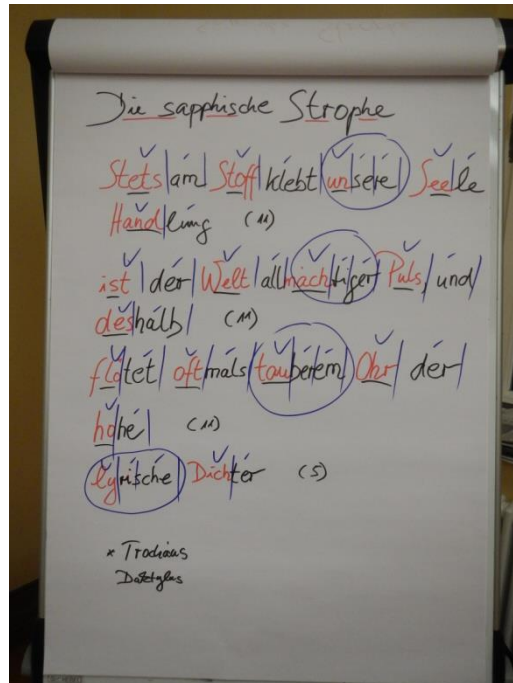 Die sapphische Strophe
Stets|am Stoff|klebt|unsere|Seele
Hand|lung (11)
ist|der|Welt|allmächtiger|Puls,|und
deshalb| (11)
flötet|oftmals|tauberem|Ohr|der
hohe| (11)
lyrische|Dichter (5)
* Trochäus
Daktylus